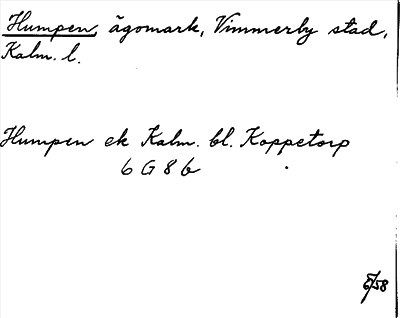 Humpen, ägomark, Vimmerby stad,
Kalm. l.
Humpen ek Kalm. bl. Koppetorp
6 G 8 b